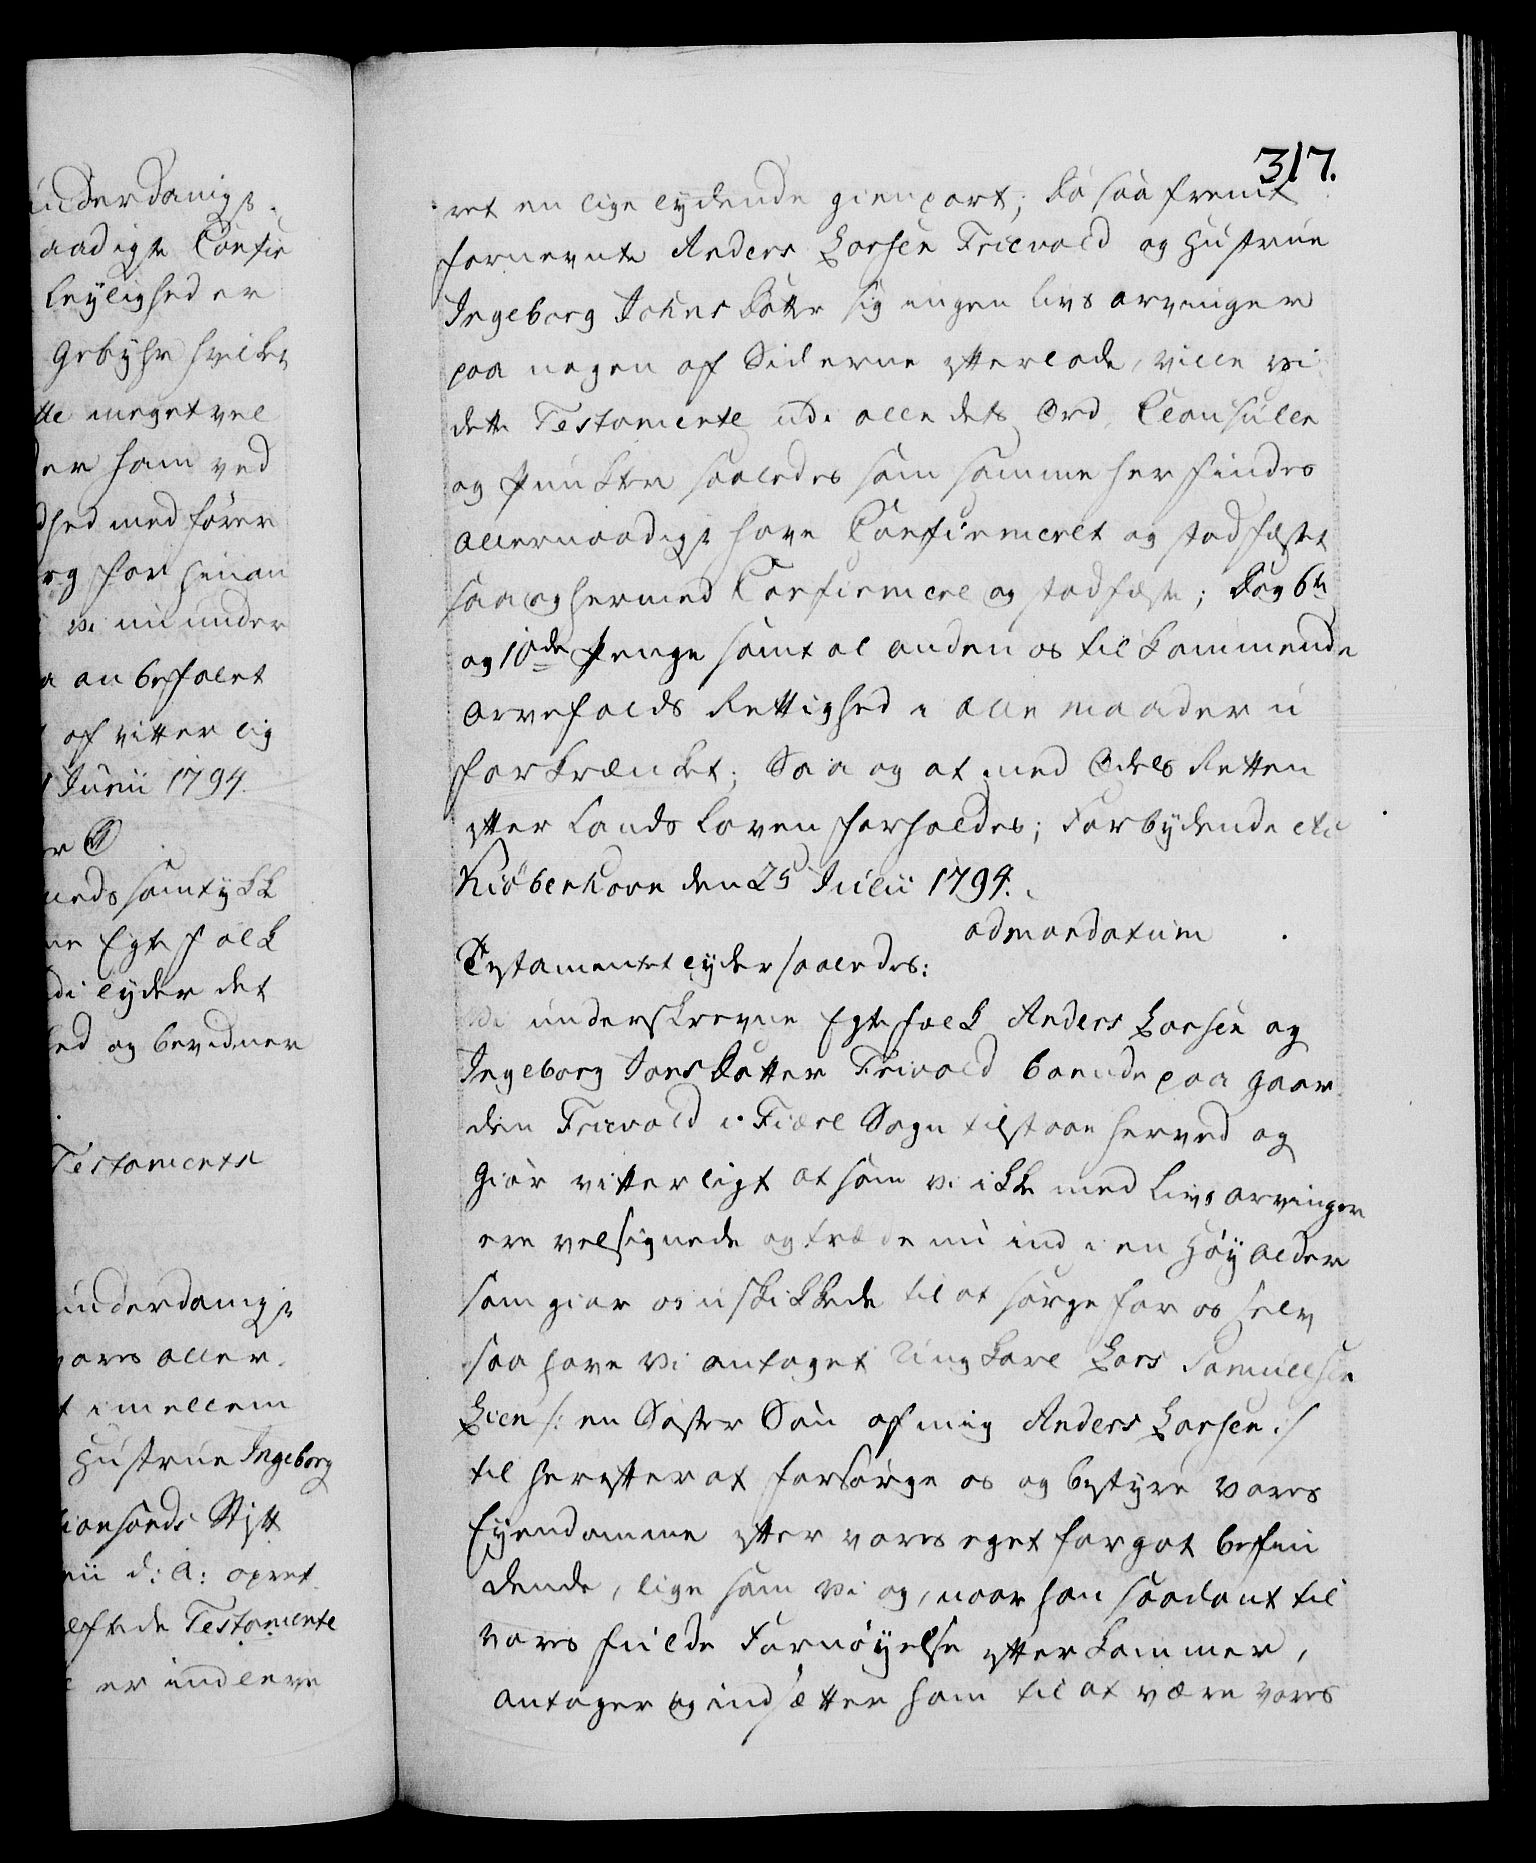 underdanigs
aadigste Confir
Leylighed er
Gebyhr hvilket
tte meget vel
der ham ved
dhed medfører
rg for hinan
vi nu under
a anbefalet
af vitterlig
Junii 1794.
neds samtykke
ne Egtefolk
di lyder det
hed og bevidner
Testamente
underdanigst
vores aller
t imellem
Hustrue Ingeborg
iansands Stift
nii d: A: opret
Testamente
er indleve
317.
ret en lige lydende gienpart; Da saafremt
fornevnte Anders Larsen Trievold og Hustrue
Ingeborg Johns Datter sig ingen livs arvinger
paa nogen af Siderne efterlade, ville vi
dette Testamente udi alle dets Ord, Clausuller
og Puncter saaledes som samme her findes
allernaadigst have Confirmeret og stadfæstet
saa og hermed Confirmere og stadfæste; Dog 6te
og 10de Penge samt al anden os tilkommende
Arvefalds Rettighed i alle maader u
forkrænket; Saa og at med Odels Retten
efter Lands Loven forholdes; Forbydende etc
Kiøbenhavn den 25 Julii 1794.
admandatum
Testamentet lyder saaledes:
Vi underskrevne Egtefolk Anders Larsen og
Ingeborg Jons Datter Trivold boende paa Gaar
den Trievold i Fiære Sogn tilstaae herved og
Giør vitterligt at som vi ikke med livs arvinger
ere velsignede og træde nu ind i en Høy alder
som giør os uskikkede til at sørge for os selv
saa have vi antaget Ungkarl Lars Samuelsen
Lien /: en Søster Søn af mig Anders Larsen :/
til herefter at forsørge os og bestyre vores
Eyendomme efter vores eget forgot befin
dende, lige som vi og, naar han saadant til
vores fulde Fornøyelse efterkommer,
antager og indsætter ham til at være vores